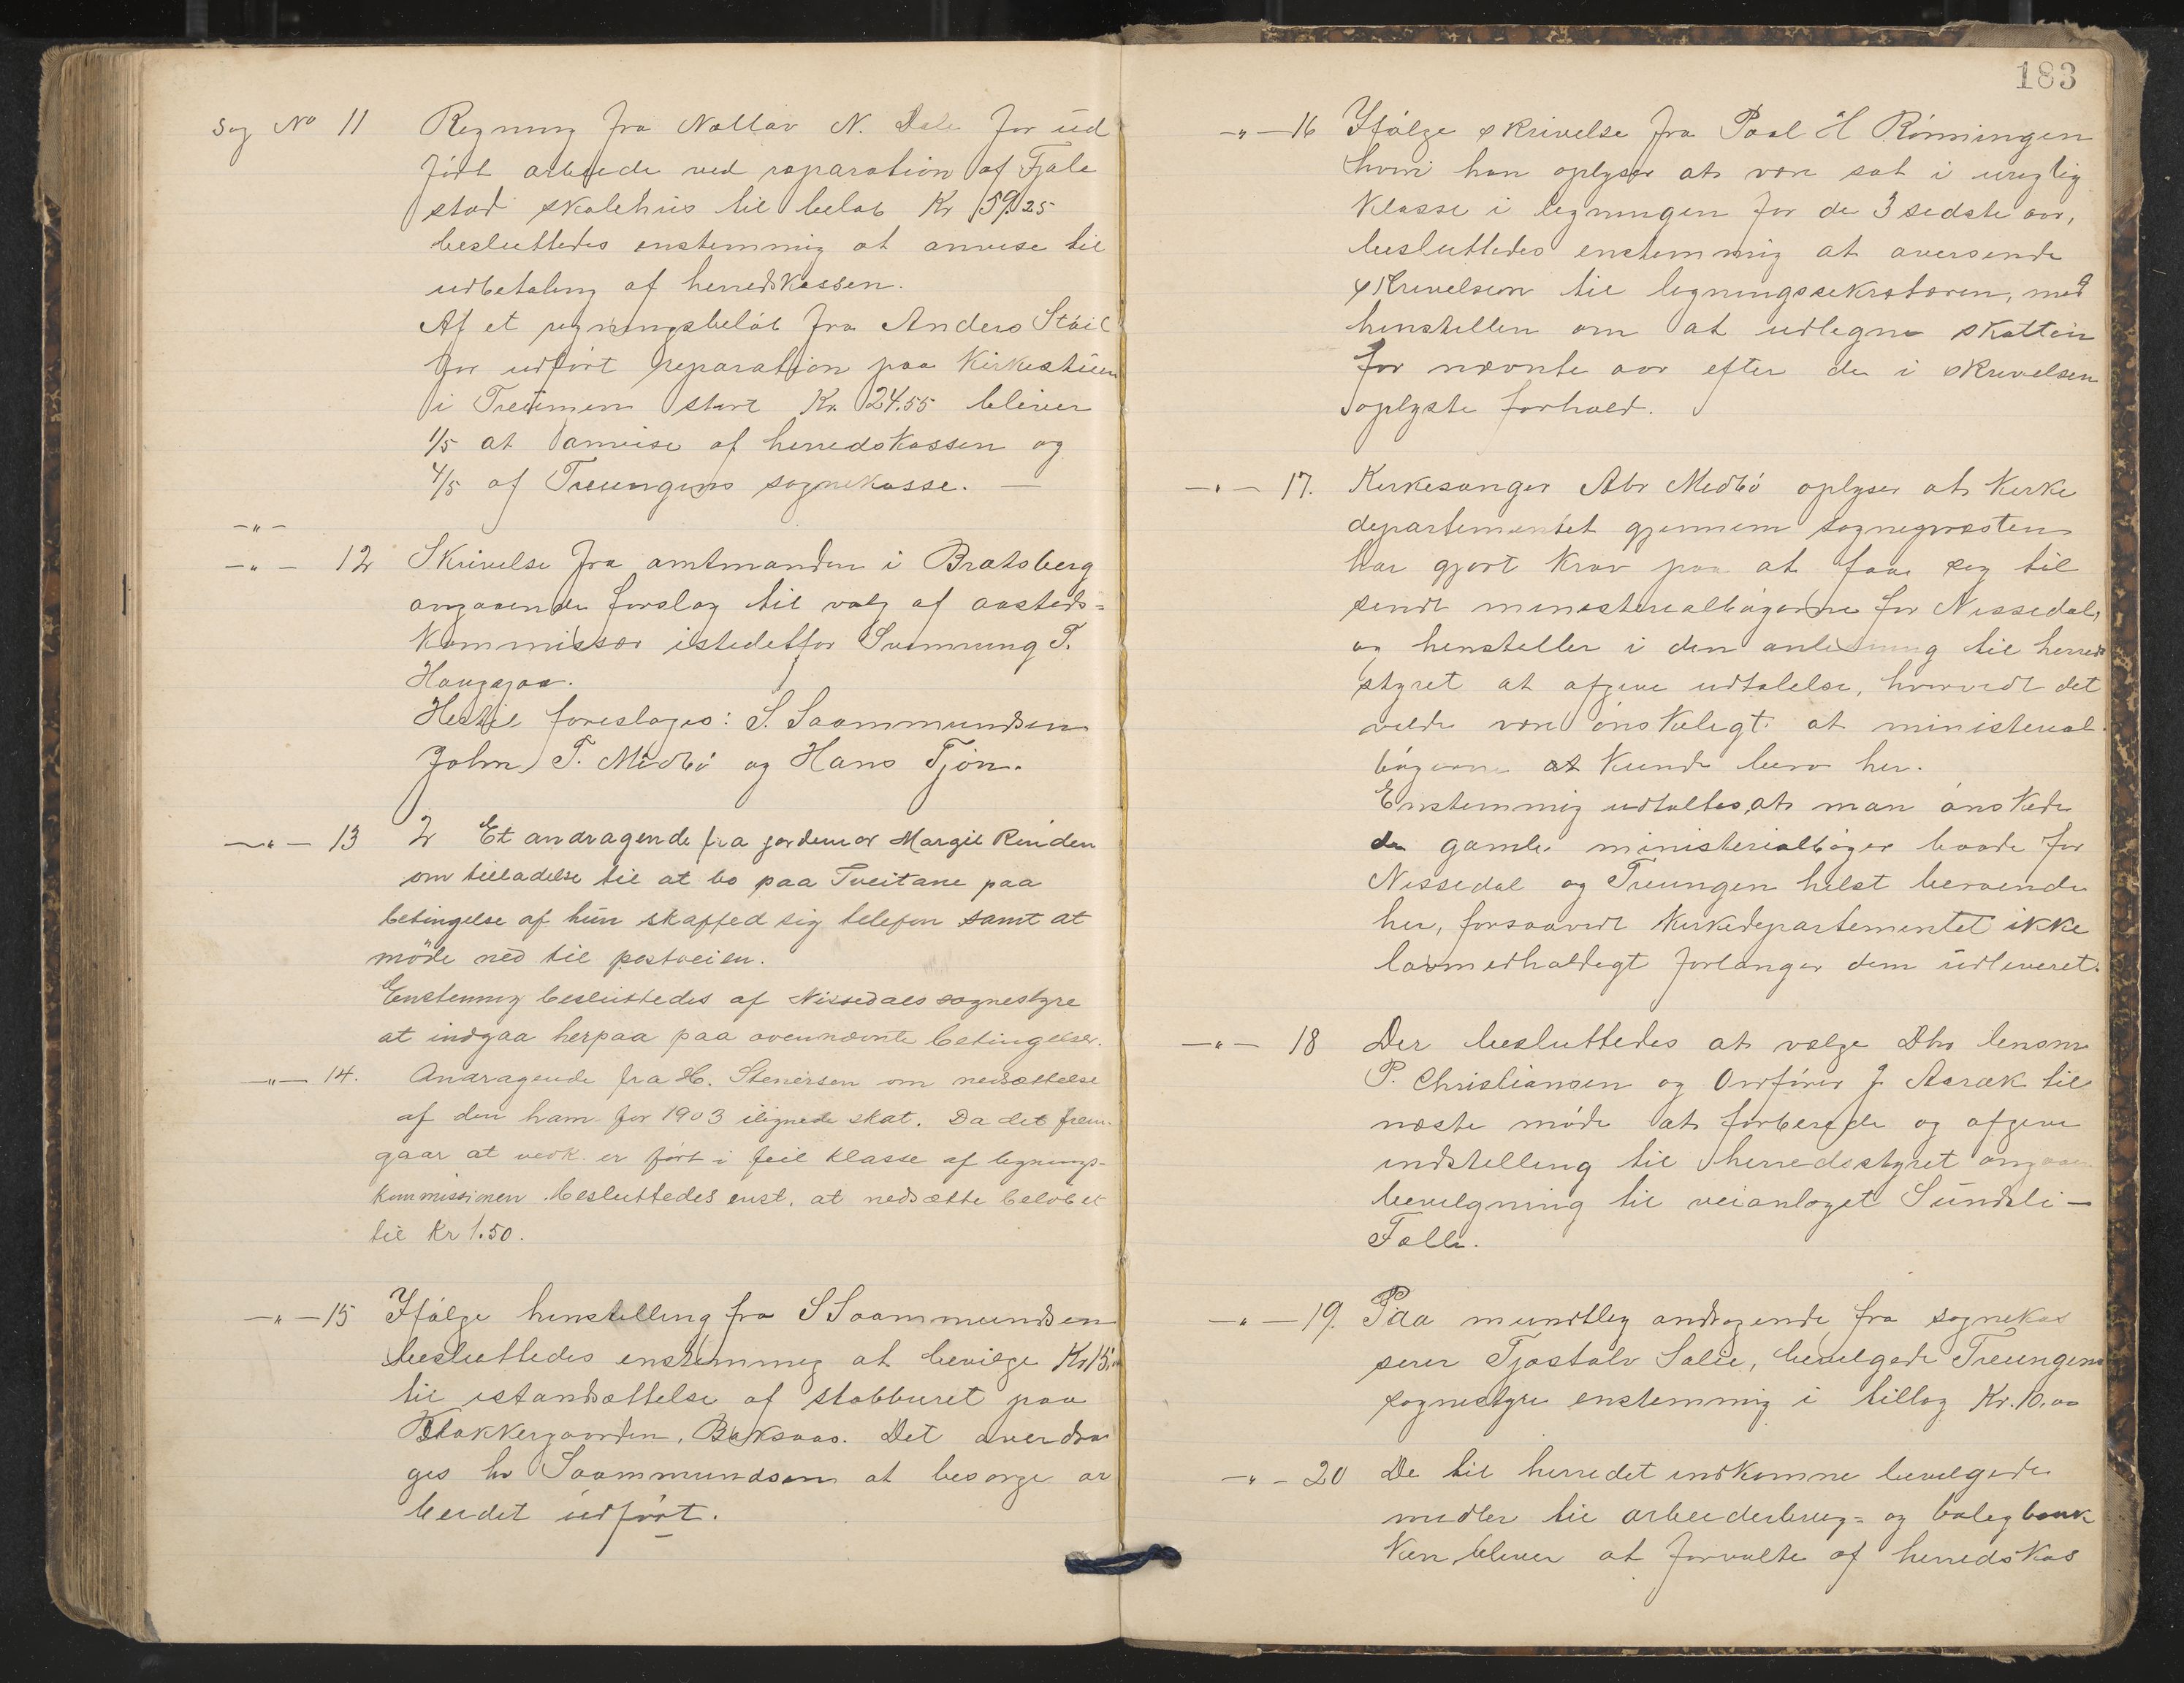 Sag No 11 Regning fra Nottov N. Dale for ud
ført arbeide ved reparation af Fjale
stad skolehus til beløb Kr 59.25
besluttedes enstemmig at anvise til
udbetaling af herredskassen.
Af et regningsbeløb fra Anders Stáil
for udført reparation paa Kirkestuen
i Treungen stort Kr. 24.55 bliver
1/5 at anvise af herredskassen og
4/5 af Treungens sognekasse. —
—"—
—"— 12 Skrivelse fra amtmanden i Bratsberg
angaaende forslag til valg af aasteds=
kommissær istedetfor Svennung T.
Haugsjaa.
Hertil foreslages: S. Saammundsen
John T. Midbø og Hans Tjøn.
—"— 13 Et andragende fra jordemor Margit Rinden
om tilladelse til at bo paa Tveitane paa
betingelse af hun skaffed sig telefon samt at
møde ned til postveien.
Enstemmig besluttedes af Nissedals sognestyre
at indgaa herpaa paa ovennævnte betingelser.
—"— 14. Andragende fra H. Stenersen om nedsættelse
af den ham for 1903 ilignede skat. Da det frem-
gaar at vedk. er ført i feil klasse af lignings-
kommissionen besluttedes enst. at nedsætte beløbet
til Kr 1.50.
—"— 15 Ifølge henstelling fra S Saammundsen
besluttedes enstemmig at bevilge Kr 15.00
til istandsættelse af stabburet paa
Klokkergaarden, Baksaas. Det overdra
ges hr Saammundsen at besørge ar
beidet udført.
183
—"— 16 Ifølge skrivelse fra Paal H Rønningen
hvori han oplyser at være sat i urigtig
klasse i ligningen for de 3 sidste aar,
besluttedes enstemmig at oversende
skrivelsen til ligningssekretæren, med
henstillen om at udlegne skatten
for nævnte aar efter de i skrivelsen
oplyste forhold.
—"— 17. Kirkesanger Abr Midbø oplyser at Kirke
departementet gjennem sognepræsten
har gjort krav paa at faa seg til
sendt ministerialbøgerne for Nissedal,
og henstiller i den anledning til herred
styret at afgive udtalelse, hvorvidt det
vilde være ønskeligt at ministerial-
bøgerne at kunde bero her.
Enstemmig udtaltes at man ønskede
de gamle ministerialbøger baade for
Nissedal og Treungen helst beroende
her, forsaavidt Kirkedepartementet ikke
lovmedholdigt forlanger dem udleveret.
—"— 18 Der besluttedes at vælge Dhr lensm
P. Christiansen og Ordfører J. Aaraak til
næste møde at forberede og afgive
indstilling til herredsstyret angaaen
bevilgning til veianlæget Sundsli —
Fælle.
—"— 19. Paa mundtleg andragende fra sognekas
serer Tjøstolv Salie, bevilgede Treungens
sognestyre enstemmig i tillæg Kr. 10.00
—"— 20 De til herredet indkomne bevilgede
midler til arbeiderbrug= og boligbank
ken bliver at forvalte af herredskas